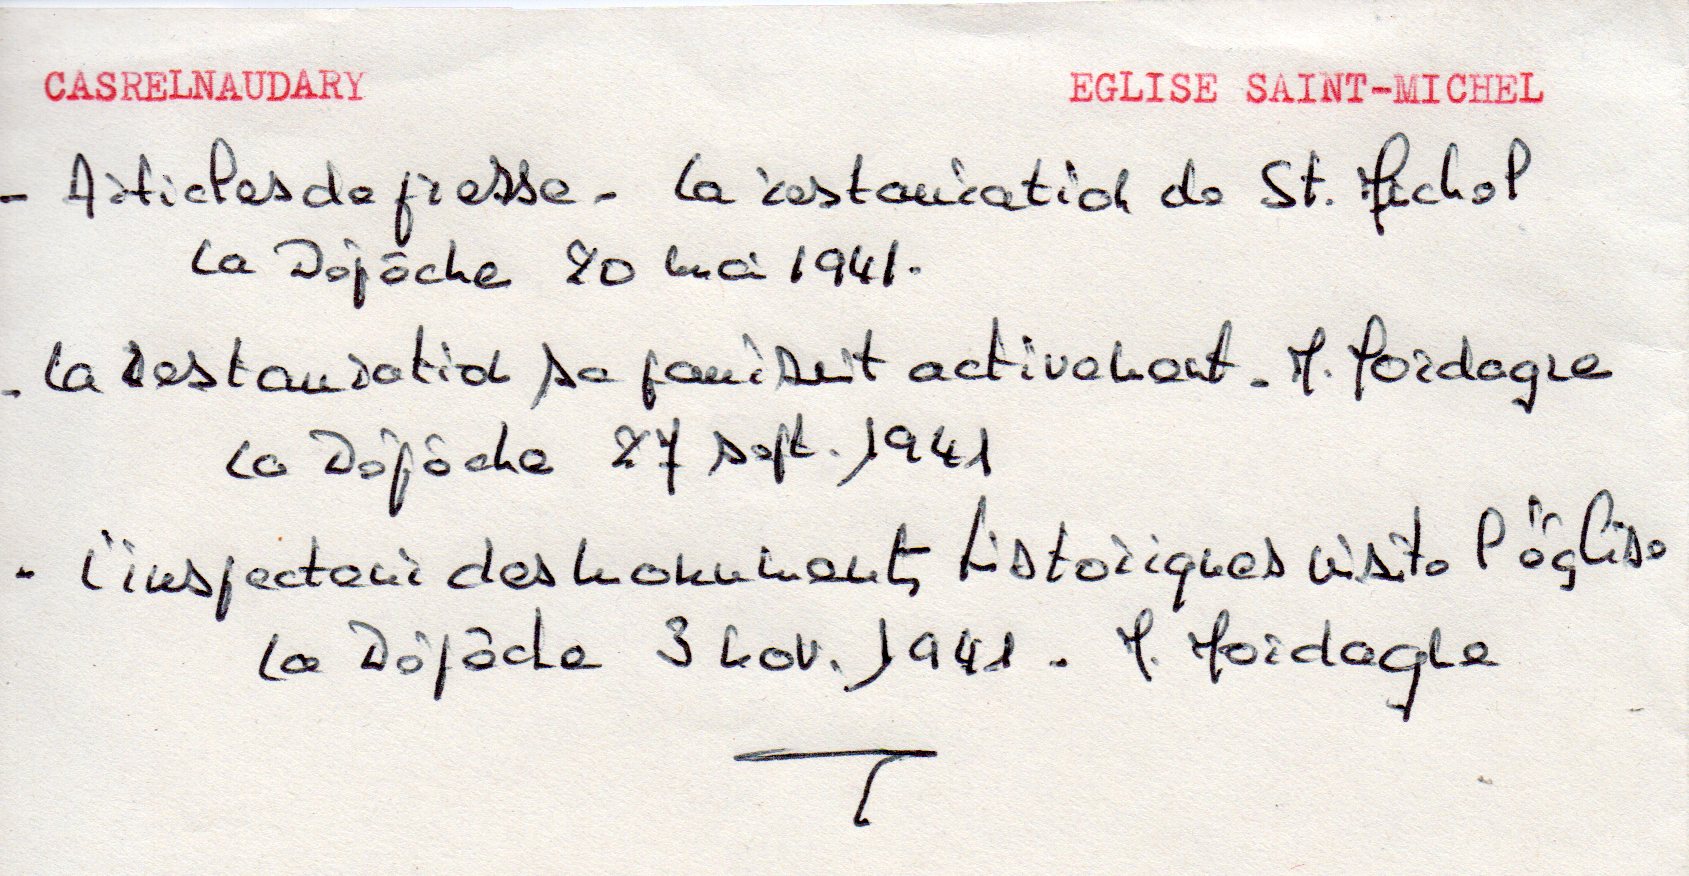 CASRELNAUDARY EGLISE SAINT-MICHEL
- Articles de presse - La restauration de St. Michel
La Dépêche 20 mai 1941.
- La restauration se poursuit activement - M. Mordagne
La Dépêche 27 sept. 1941
- L'inspecteur des monuments historiques visite l'église
La Dépêche 3 nov. 1941 - M. Mordagne